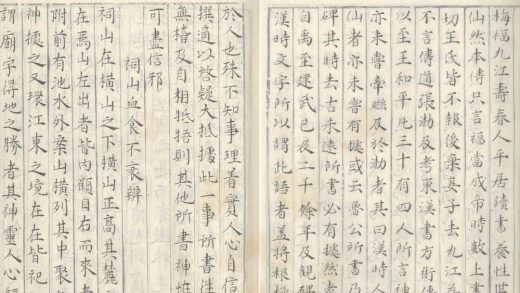 梅福九江壽春人平居讀書養性世
仙然本傳只言福當成帝時數上書
切王氏皆不報後棄妻子去九江
不言傳道張渤及考東漢書方術傳
以至王和平凡三十有四人所言神
亦未嘗牽聯及於渤者其曰漢時人
仙者亦未嘗有據或云魯公所書乃
碑其時去古未遠所書必有據然
自禹至建武已及二千餘年及觀碑
漢時文字所以謂此語者蓋將根
於人也殊不知事理着實人心自信
撰適以啓疑大抵據此一事所書件
無稽及自相牴牾則其他所書神恠
可盡信邪
祠山血食不衰辨
祠山在橫山之下橫山正高其麓
在焉山左出者皆內顧自右而來者
附前有池水外案山橫列其中聚
神據之又環江東之境在在皆祀
謂廟宇得地之勝者其神靈人心